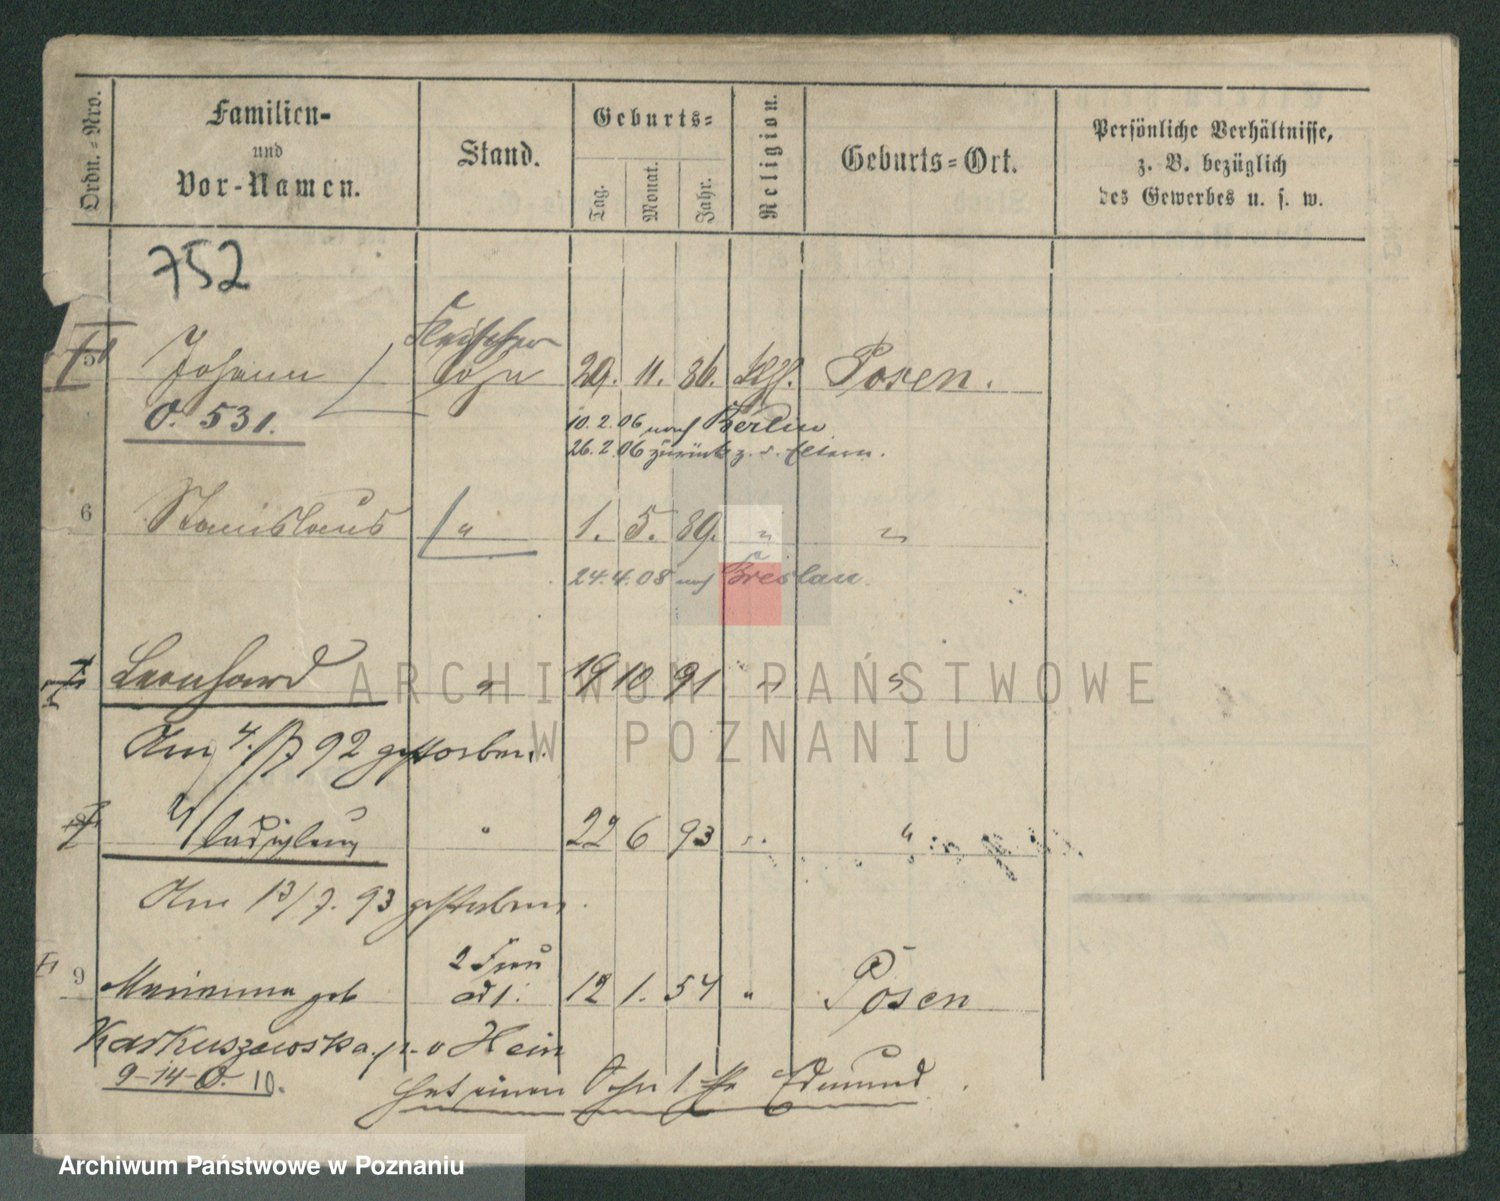 Ordn.-Nro.
Familien-
und
Vor-Namen.
Stand.
Geburts-
Tag.
Monat.
Jahr.
Religion.
Geburts-Ort.
Persönliche Verhältnisse,
z. B. bezüglich
des Gewerbes u. s. w.
752
Fleischer
5 Johann Sohn 29. 11. 86. Kth. Posen.
O. 531.
10.2.06 nach Berlin
26.2.06 zurück z. d. Eltern.
6 Stanislaus " 1. 5. 89. " "
24.4.08 nach Breslau.
7 Leonhard " 19 10 91 " "
ARCHIWUM PAŃSTWOWE
W POZNANIU
Am 4./7 92 gestorben.
Wladislaus " 22 6 93 " "
Am 13/7. 93 gestorben.
2 Frau
9 Marianna geb ad 1. 12 1. 54 " Posen
Karkuszewska. p. v Hein
9-14-O. 10.
hat einen Sohn Edmund.
Archiwum Państwowe w Poznaniu